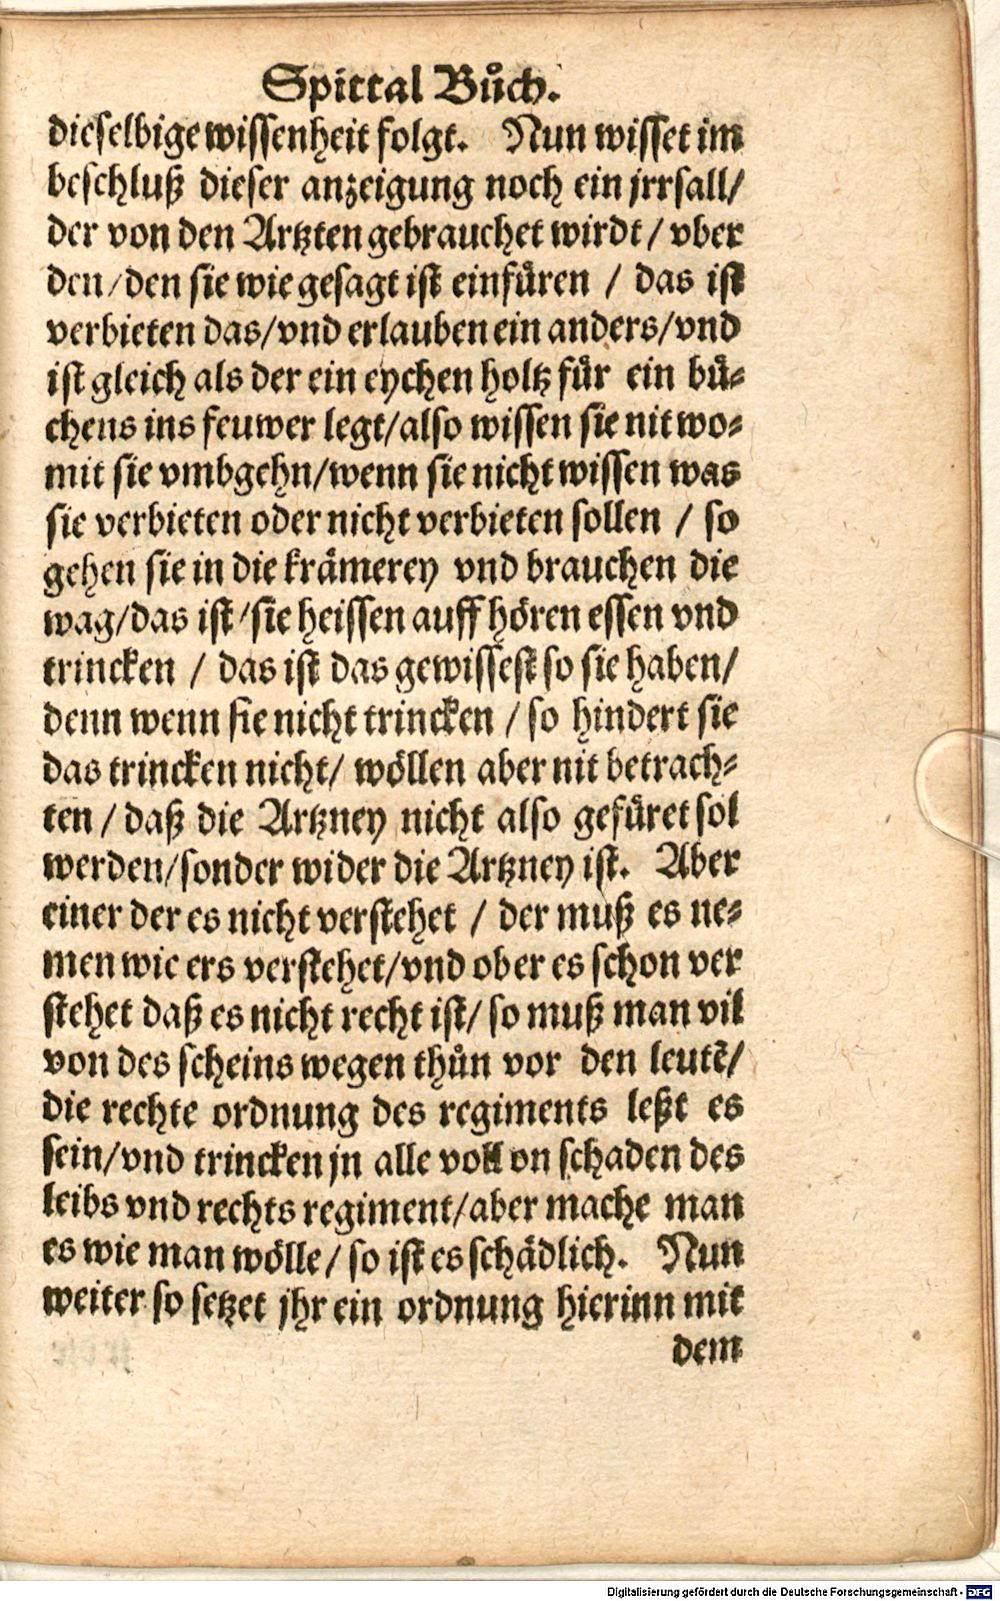 Spittal Bůch.
dieselbige wissenheit folgt. Nun wisset im
beschluß dieser anzeigung noch ein jrrsall/
der von den Artzten gebrauchet wirdt / vber
den/den sie wie gesagt ist einfüren / das ist
verbieten das/vnd erlauben ein anders/vnd
ist gleich als der ein eychen holtz für ein bü-
chens ins feuwer legt/also wissen sie nit wo-
mit sie vmbgehn/wenn sie nicht wissen was
sie verbieten oder nicht verbieten sollen / so
gehen sie in die krämerey vnd brauchen die
wag/das ist/sie heissen auff hören essen vnd
trincken / das ist das gewissest so sie haben/
denn wenn sie nicht trincken / so hindert sie
das trincken nicht/ wöllen aber nit betrach-
ten / daß die Artzney nicht also gefüret sol
werden/sonder wider die Artzney ist. Aber
einer der es nicht verstehet / der muß es ne-
men wie ers verstehet/vnd ober es schon ver
stehet daß es nicht recht ist/ so muß man vil
von des scheins wegen thůn vor den leutē/
die rechte ordnung des regiments leßt es
sein/vnd trincken jn alle voll on schaden des
leibs vnd rechts regiment/aber mache man
es wie man wölle/ so ist es schädlich. Nun
weiter so setzet jhr ein ordnung hierinn mit
dem
Digitalisierung gefördert durch die Deutsche Forschungsgemeinschaft - DFG